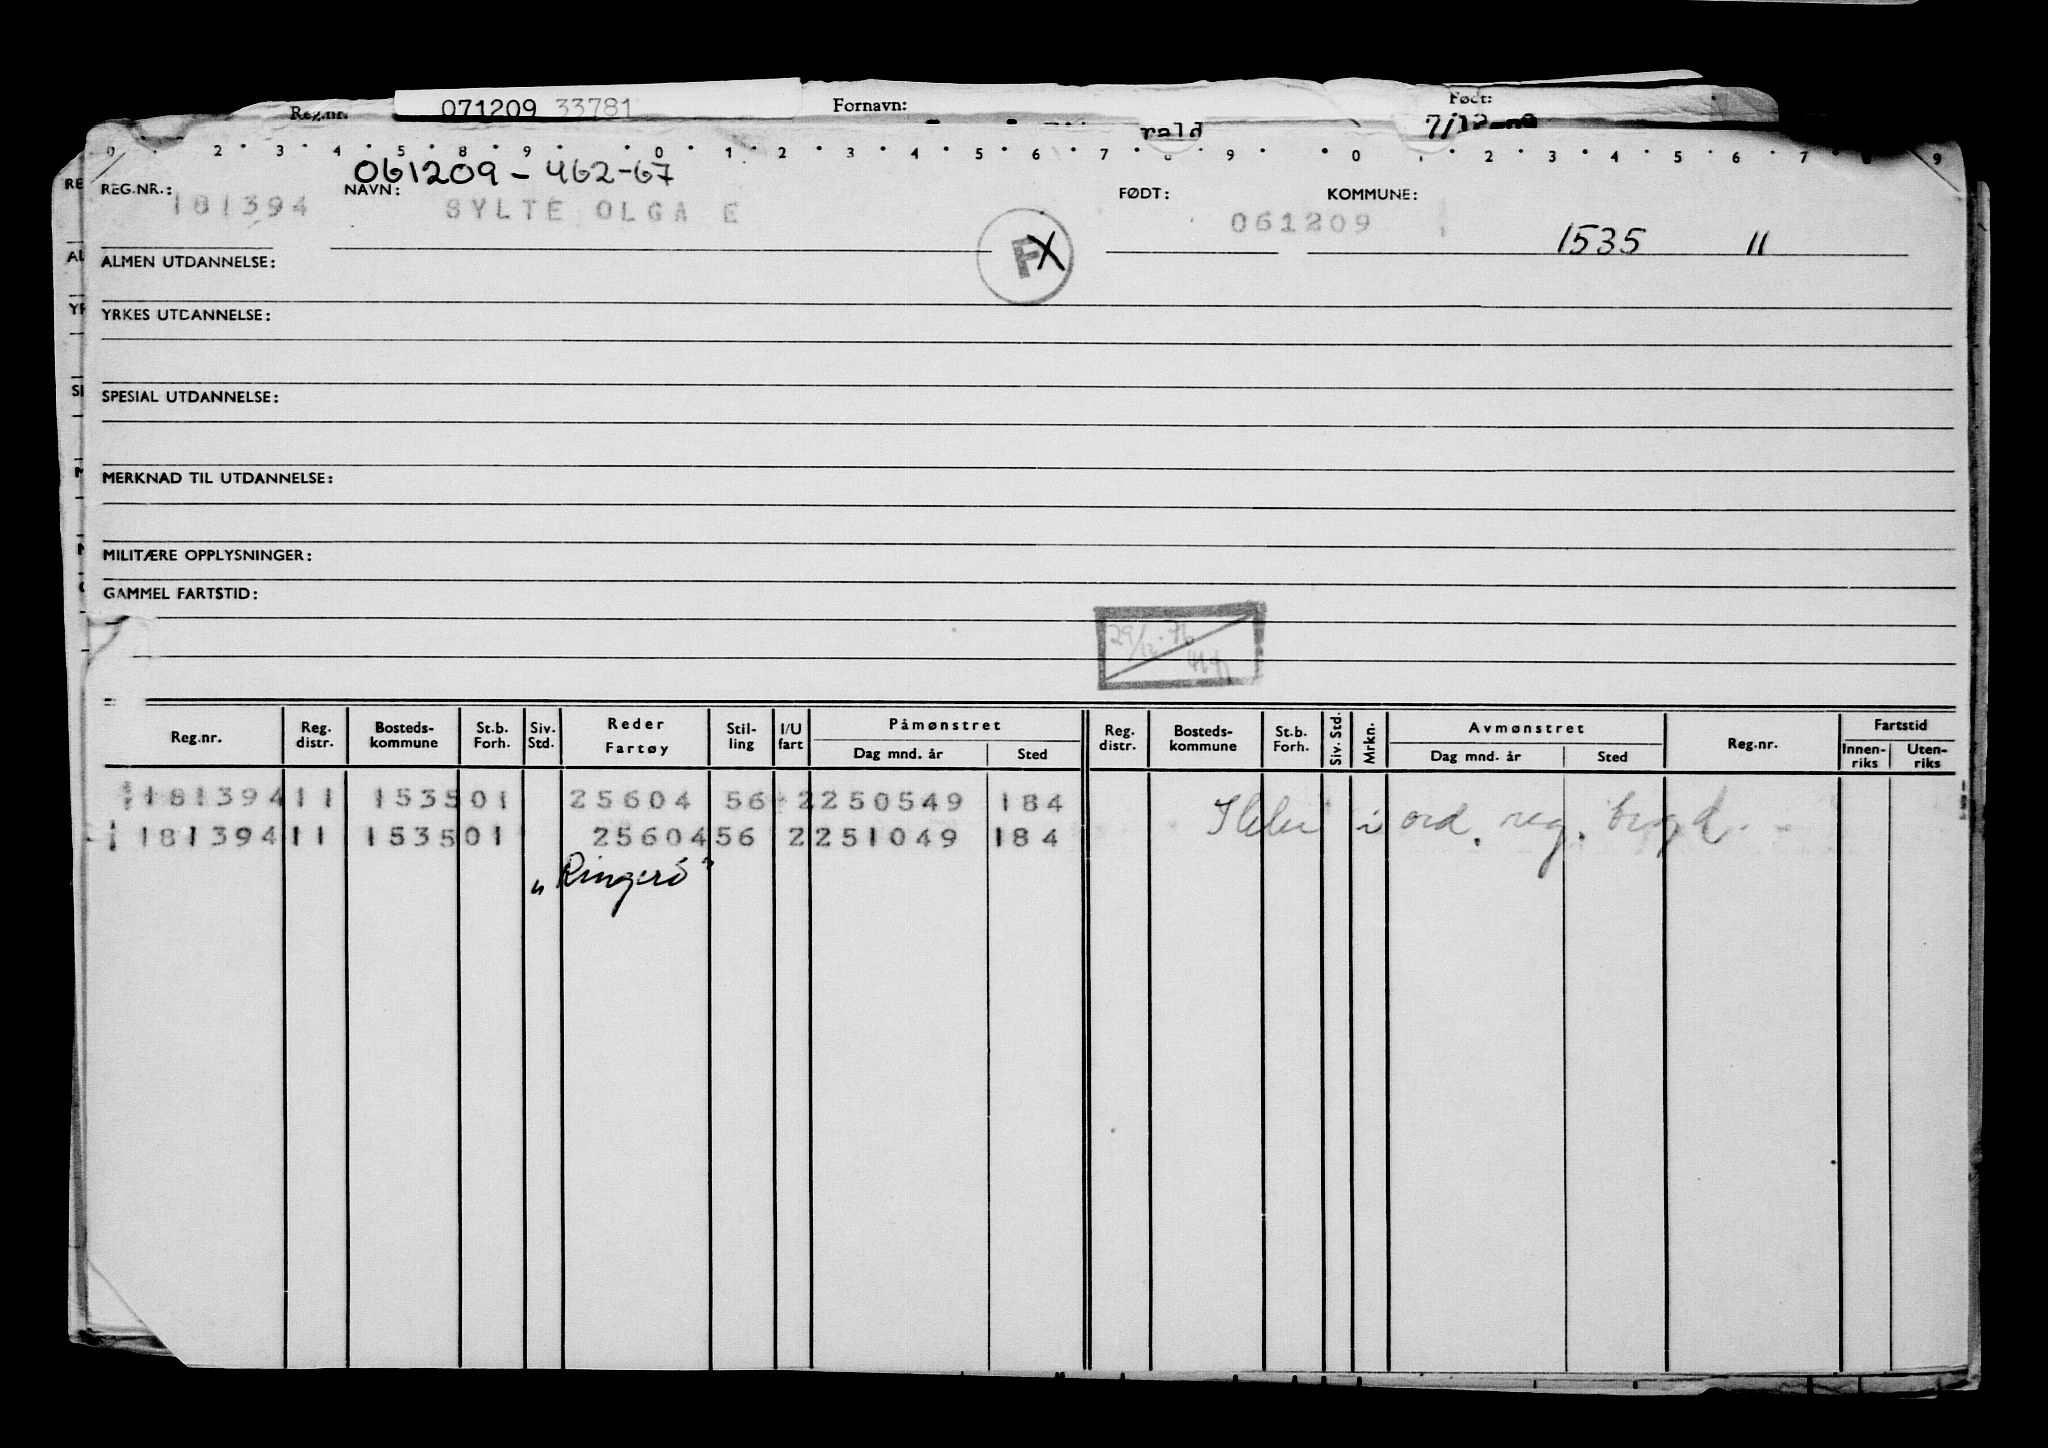 Reg.nr. 071209 33781 Fornavn: Født:
rald 7/12-09
0 2 3 4 5 8 9 0 1 2 3 4 5 6 7 8 9 0 1 2 3 4 5 6 7 8 9
061209-462-67
REG.NR.: 181394 NAVN: SYLTE OLGA E FØDT: 061209 KOMMUNE: 1535 11
F X
ALMEN UTDANNELSE:
YRKES UTDANNELSE:
SPESIAL UTDANNELSE:
MERKNAD TIL UTDANNELSE:
MILITÆRE OPPLYSNINGER:
GAMMEL FARTSTID:
29/12-76
Reg.nr. Reg. distr. Bosteds-kommune St.b. Forh. Siv. Std. Reder Fartøy Stil-ling I/U fart Påmønstret Dag mnd. år Sted Reg. distr. Bosteds-kommune St.b. Forh. Siv. Std. Mrkn. Avmønstret Dag mnd. år Sted Reg.nr. Fartstid Innen-riks Uten-riks
181394 11 1535 01 25604 56 2 250549 184 i ord. reg.
181394 11 1535 01 25604 56 2 251049 184
"Ringerö"